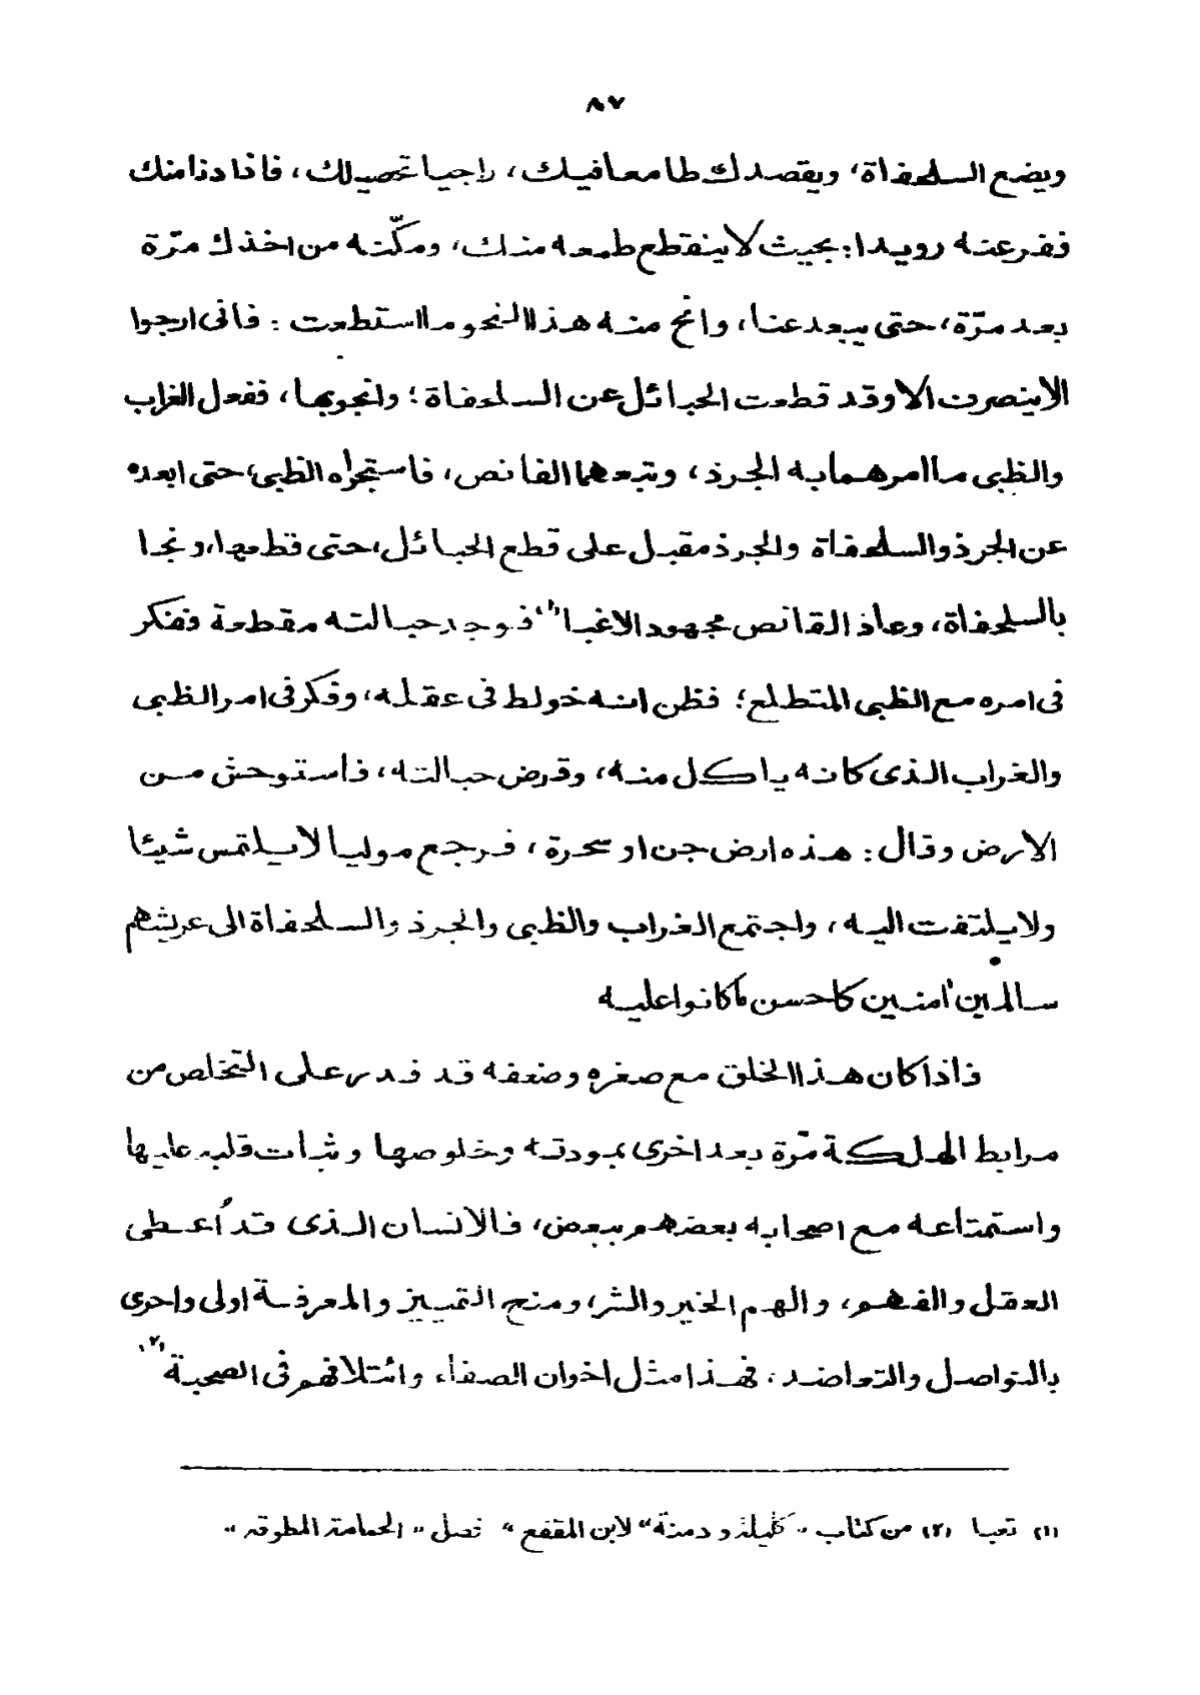 ٨٧
ويضع السلحفاة، ويقصدك طامعا فيك، راجيا تحصيلك، فاذا دنا منك
ففر عنه رويدا: بحيث لا ينقطع طمعه منك، ومكّنه من اخذك مرّة
بعد مرّة، حتى يبعد عنا، وانح منه هذا النحو ما استطعت : فانى ارجوا
الا ينصرف الا وقد قطعت الحبائل عن السلحفاة؛ وانجوبها، ففعل الغراب
والظبى ما امرهما به الجرذ، وتبعهما القانص، فاستجراه الظبى، حتى ابعده
عن الجرذ والسلحفاة والجرذ مقبل على قطع الحبائل، حتى قطعها، ونجا
بالسلحفاة، وعاد القانص مجهود الاغبا(١)، فوجد حبالته مقطعة ففكر
فى امره مع الظبى المتطلع؛ فظن انه خولط فى عقله، وفكر فى امر الظبى
والغراب الذى كانه ياكل منه، وقرض حبالته، فاستوحش من
الارض وقال : هذه ارض جن او سحرة ، فرجع موليا لا يلتمس شيئا
ولا يلتفت اليه ، واجتمع الغراب والظبى والجرذ والسلحفاة الى عريشهم
سالمين أمنين كاحسن ما كانوا عليه
فاذا كان هذا الخلق مع صغره وضعفه قد قدر على التخلص من
مرابط الهلكة مرّة بعد اخرى بمودته وخلوصها وثبات قلبه عليها
واستمتاعه مع اصحابه بعضهم ببعض، فالانسان الذى قد أعطى
العقل والفهم، والهم الخير والشر، ومنح التمييز والمعرفة اولى واحرى
بالتواصل والتعاضد ، فهذا مثل اخوان الصفاء وائتلافهم فى الصحبة(٢)
(١) تعبا (٢) من كتاب "كليلة ودمنة" لابن المقفع " فصل " الحمامة المطوقه "